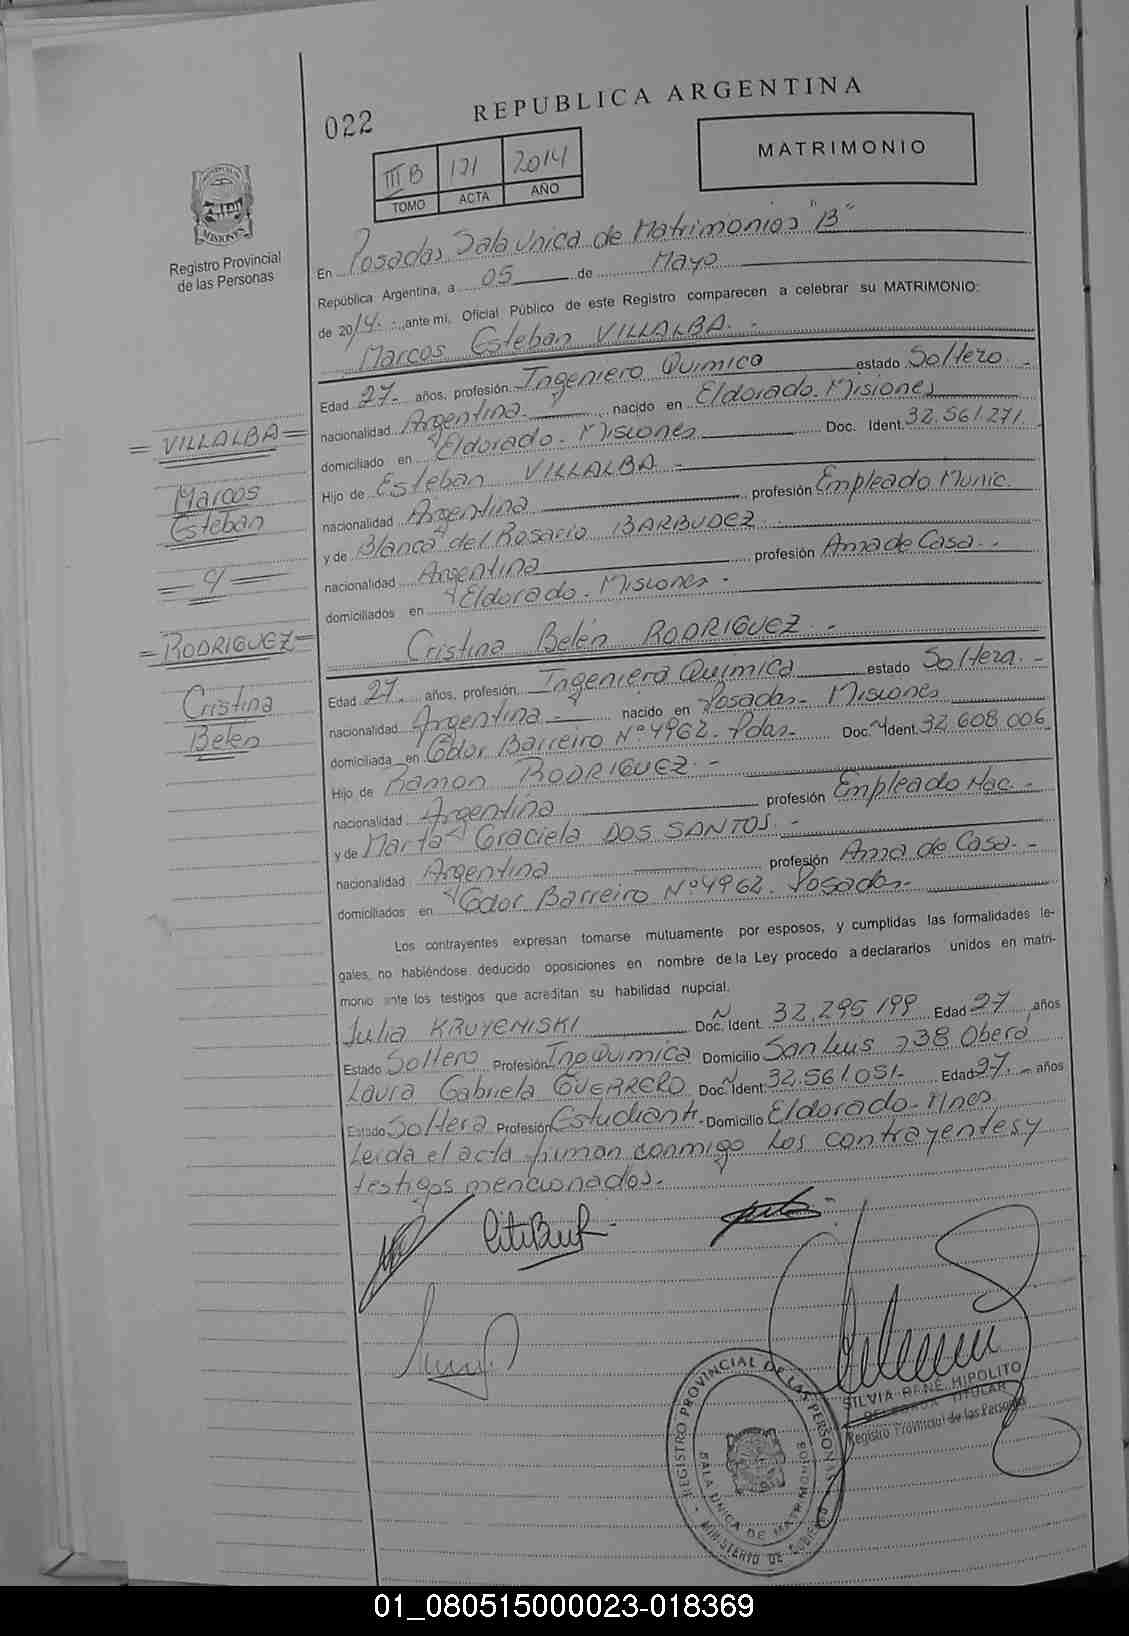 022
REPUBLICA ARGENTINA
MATRIMONIO
III B 121 2014
TOMO ACTA AÑO
PROVINCIA DE
MISIONES
Registro Provincial
de las Personas
En Posadas Sala Unica de Matrimonios "B"
República Argentina, a 05 de Mayo
de 2014.- ante mi, Oficial Público de este Registro comparecen a celebrar su MATRIMONIO:
Marcos Esteban VILLALBA.-
Edad 27.- años, profesión Ingeniero Quimico estado Soltero.-
nacionalidad Argentina.- nacido en Eldorado. Misiones
domiciliado en Eldorado.- Misiones Doc. Ident. 32.561.271.
Hijo de Esteban VILLALBA.-
nacionalidad Argentina profesión Empleado Munic.
y de Blanca del Rosario BARBUDEZ.-
nacionalidad Argentina profesión Ama de Casa.-
domiciliados en Eldorado. Misiones.-
Cristina Belén RODRIGUEZ.-
Edad 27.- años, profesión Ingeniera Quimica estado Soltera.-
nacionalidad Argentina.- nacido en Posadas- Misiones
domiciliada en Gdor Barreiro Nº 4962. Pdas.- Doc. Ident. 32.608.006
Hijo de Ramon RODRIGUEZ.-
nacionalidad Argentina profesión Empleado Nac.-
y de Marta Graciela DOS SANTOS.-
nacionalidad Argentina profesión Ama de Casa.-
domiciliados en Gdor Barreiro Nº 4962. Posadas-
Los contrayentes expresan tomarse mutuamente por esposos, y cumplidas las formalidades le-
gales, no habiéndose deducido oposiciones en nombre de la Ley procedo a declararlos unidos en matri-
monio ante los testigos que acreditan su habilidad nupcial.
Julia KRUYENISKI Doc. Ident. 32.295.199 Edad 27 años
Estado Soltero Profesión Ing Quimica Domicilio San Luis 238 Oberá
Laura Gabriela GUERRERO Doc. Ident: 32.561.051- Edad 27.- años
Estado Soltera Profesión Estudiante.- Domicilio Eldorado- Mnes
Leída el acta firman conmigo los contrayentes y
testigos mencionados.-
= VILLALBA =
Marcos
Esteban
= c/ =
= RODRIGUEZ =
Cristina
Belén
SILVIA RENÉ HIPOLITO
DELEGADA TITULAR
Registro Provincial de las Personas
REGISTRO PROVINCIAL DE LAS PERSONAS
SALA UNICA DE MATRIMONIOS
MINISTERIO DE GOBIERNO
01_080515000023-018369